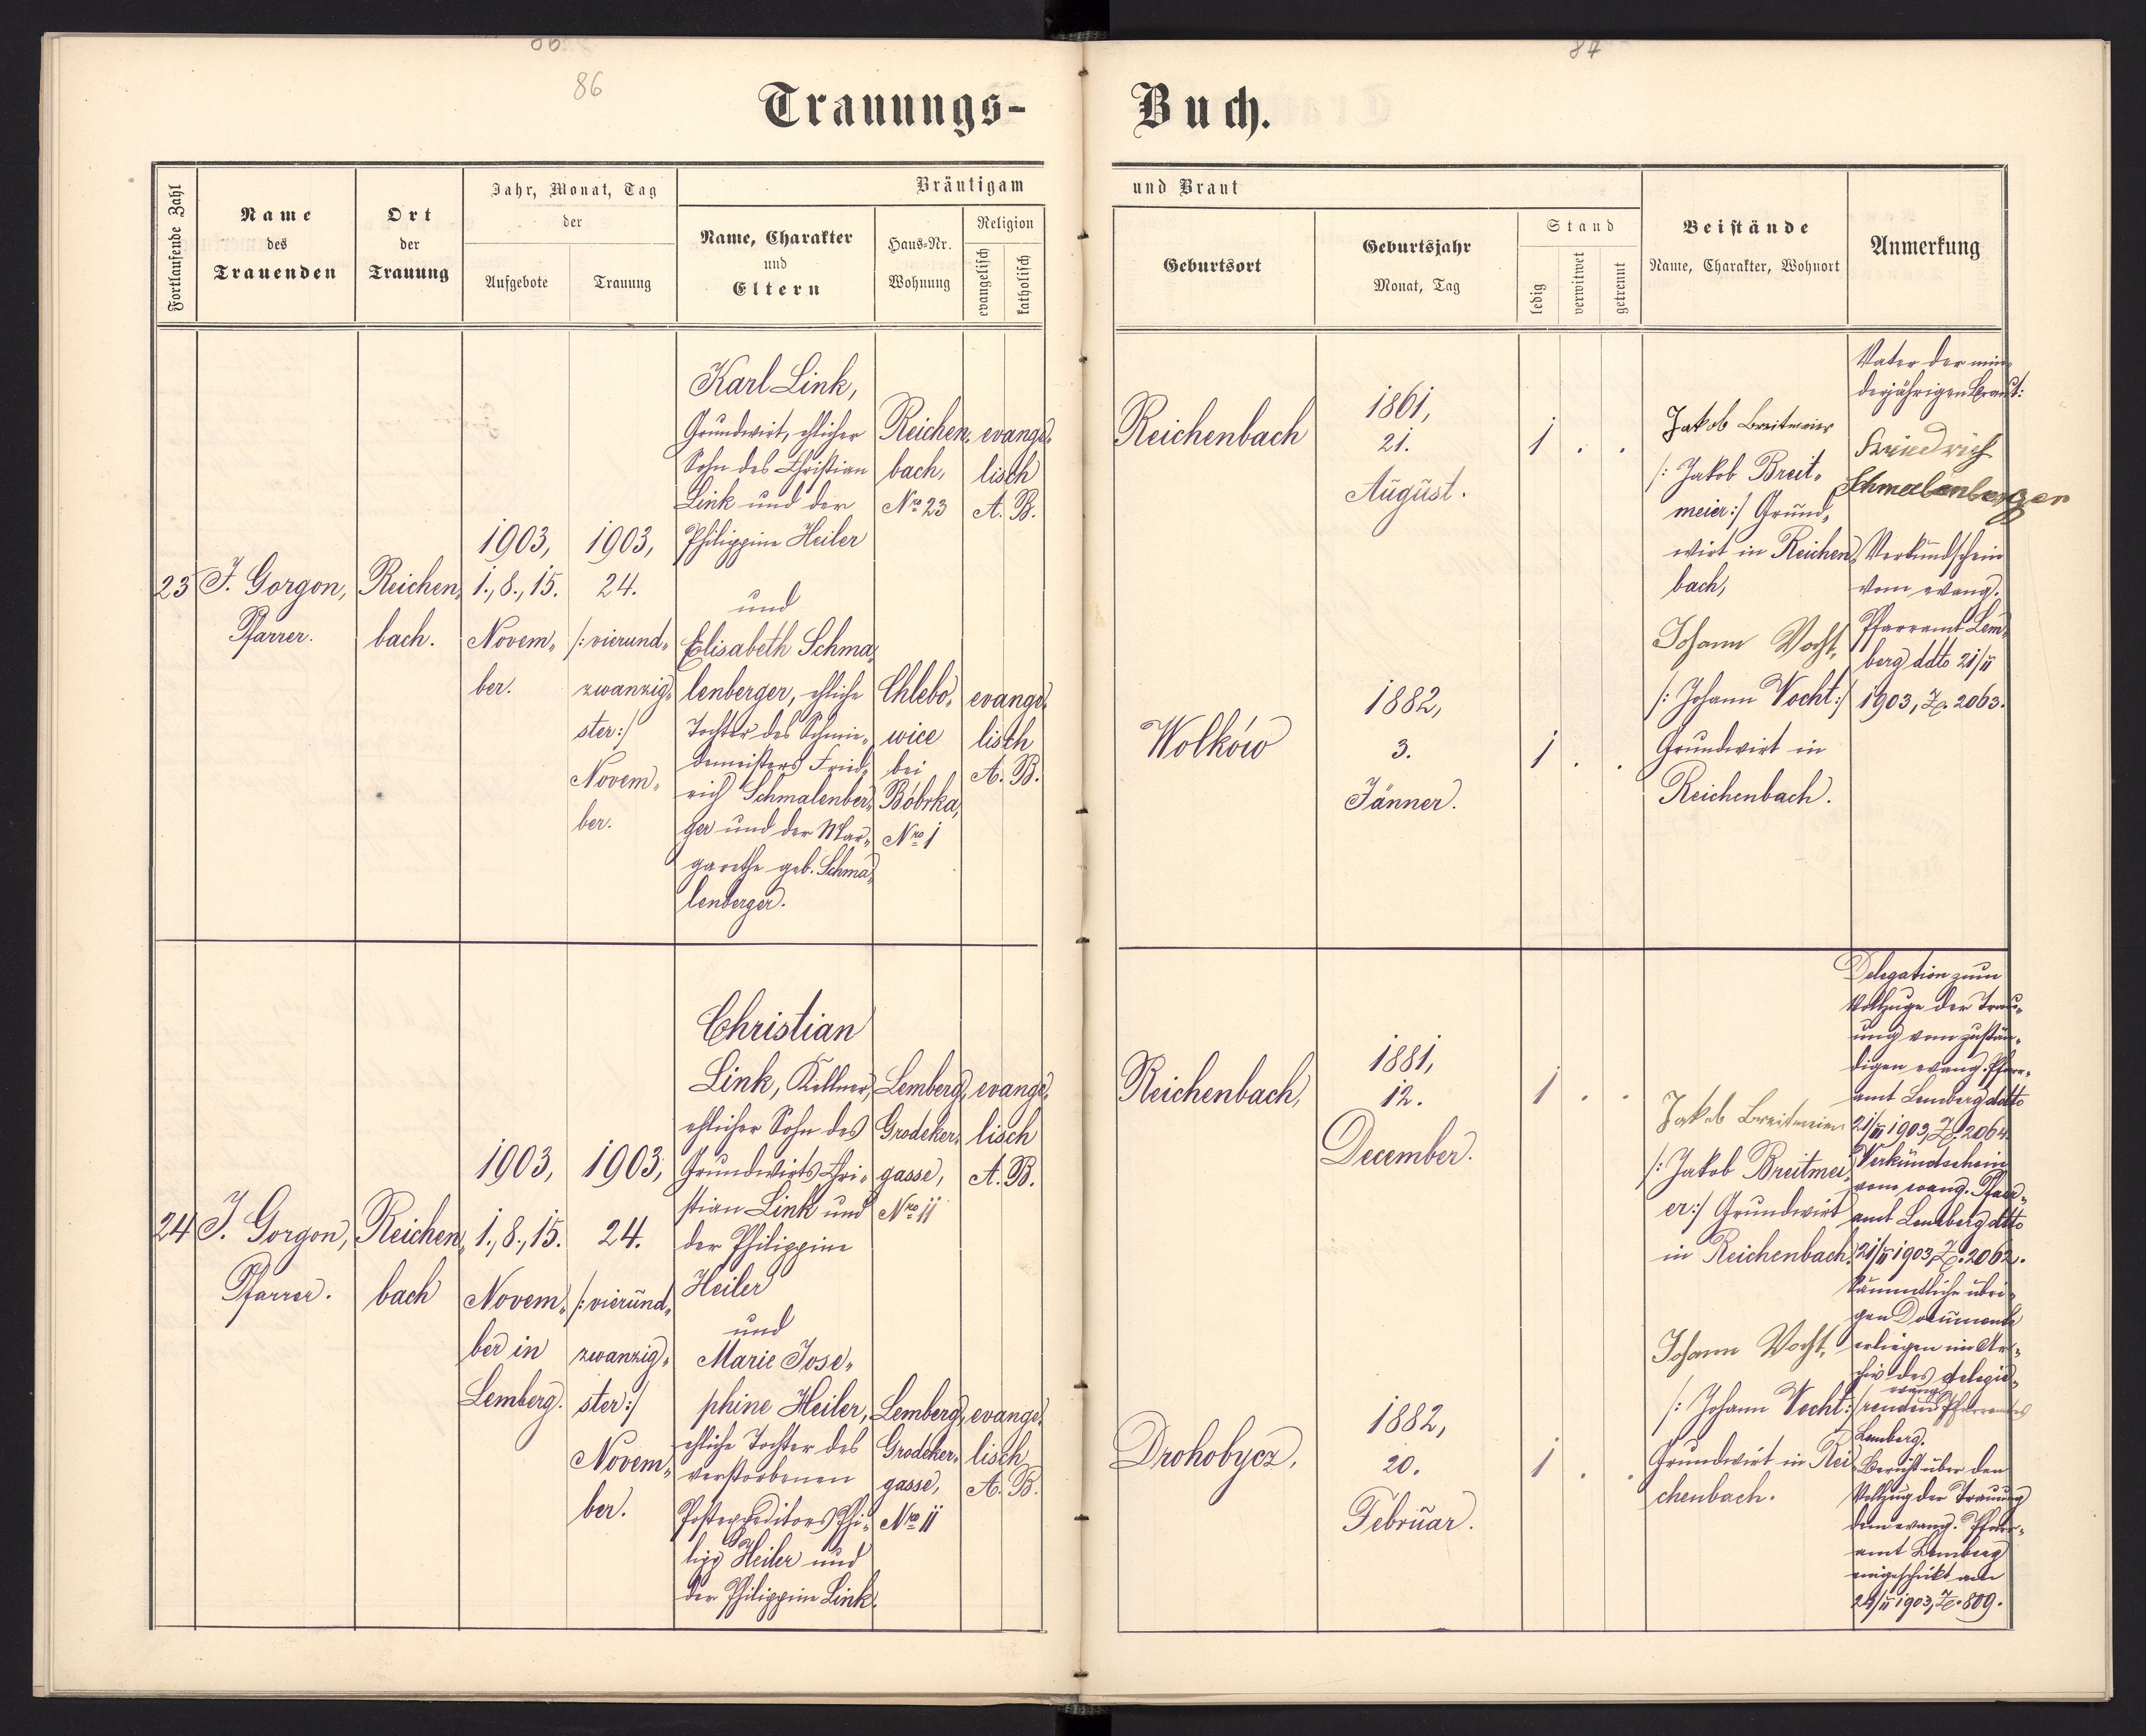 86
87
86
Trauungs-
Buch.
Fortlaufende Zahl
Name
des
Trauenden
Ort
der
Trauung
Jahr, Monat, Tag
der
Aufgebote
Trauung
Bräutigam
Name, Charakter
und
Eltern
Haus-Nr.
Wohnung
Religion
evangelisch
katholisch
und Braut
Geburtsort
Geburtsjahr
Monat, Tag
Stand
ledig
verwitwet
getrennt
Beistände
Name, Charakter, Wohnort
Anmerkung
23
J. Gorgon,
Pfarrer.
Reichen„
bach.
1903,
1., 8., 15.
Novem„
ber.
1903,
24.
/: vierund„
zwanzig„
ster :/
Novem„
ber.
Karl Link,
Grundwirt, ehlicher
Sohn des Christian
Link und der
Philippine Heiler
und
Elisabeth Schma„
lenberger, ehliche
Tochter des Schmie„
demeisters Fried„
rich Schmalenber„
ger und der Mar„
garethe geb. Schma„
lenberger.
Reichen„
bach,
Nro 23
Chlebo„
wice
bei
Bóbrka,
Nro 1
evange„
lisch
A. B.
evange„
lisch
A. B.
Reichenbach
1861,
21.
August.
1 . .
Wolków
1882,
3.
Jänner.
1 . .
Jakob Breitmeier
/: Jakob Breit„
meier :/ Grund„
wirt in Reichen„
bach,
Johann Vocht,
/: Johann Vocht :/
Grundwirt in
Reichenbach.
Vater der min„
derjährigen Braut:
Friedrich
Schmalenberger
Verkündschein
vom evang.
Pfarramt Lem„
berg ddto 21/11
1903, Z. 2063.
24
J. Gorgon,
Pfarrer.
Reichen„
bach
1903,
1., 8., 15.
Novem„
ber in
Lemberg.
1903,
24.
/: vierund„
zwanzig„
ster :/
Novem„
ber.
Christian
Link, Kellner,
ehlicher Sohn des
Grundwirts Chri„
stian Link und
der Philippine
Heiler
und
Marie Jose„
phine Heiler,
ehliche Tochter des
verstorbenen
Postexpeditors Phi„
lipp Heiler und
der Philippine Link.
Lemberg,
Grodeker„
gasse,
Nro 11
Lemberg,
Grodeker„
gasse,
Nro 11
evange„
lisch
A. B.
evange„
lisch
A. B.
Reichenbach,
1881,
12.
December.
1 . .
Drohobycz,
1882,
20.
Februar.
1 . .
Jakob Breitmeier
/: Jakob Breitmei„
er :/ Grundwirt
in Reichenbach.
Johann Vocht,
/: Johann Vocht :/
Grundwirt in Rei„
chenbach.
Delegation zum
Vollzuge der Trau„
ung vom zustän„
digen evang. Pfarr„
amt Lemberg ddto
21/11 1903, Z. 2064.
Verkündschein
vom evang. Pfarr„
amt Lemberg ddto
21/11 1903, Z. 2062.
Sämmtliche übri„
gen Documente
erliegen im Ar„
chiv des delegie„
renden evang. Pfarramtes
Lemberg.
Bericht über den
Vollzug der Trauung
dem evang. Pfarr„
amt Lemberg
eingeschickt am
24/11 1903, Z. 809.